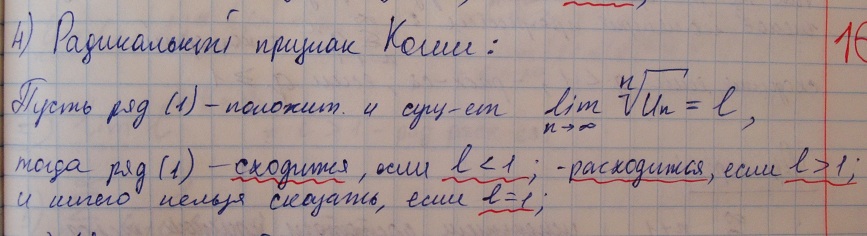 4) Радикальный признак Коши:
16
Пусть ряд (1) – положит. и сущ-ет lim n→∞ ⁿ√Uₙ = l,
тогда ряд (1) – сходится, если l < 1; - расходится, если l > 1;
и ничего нельзя сказать, если l = 1;